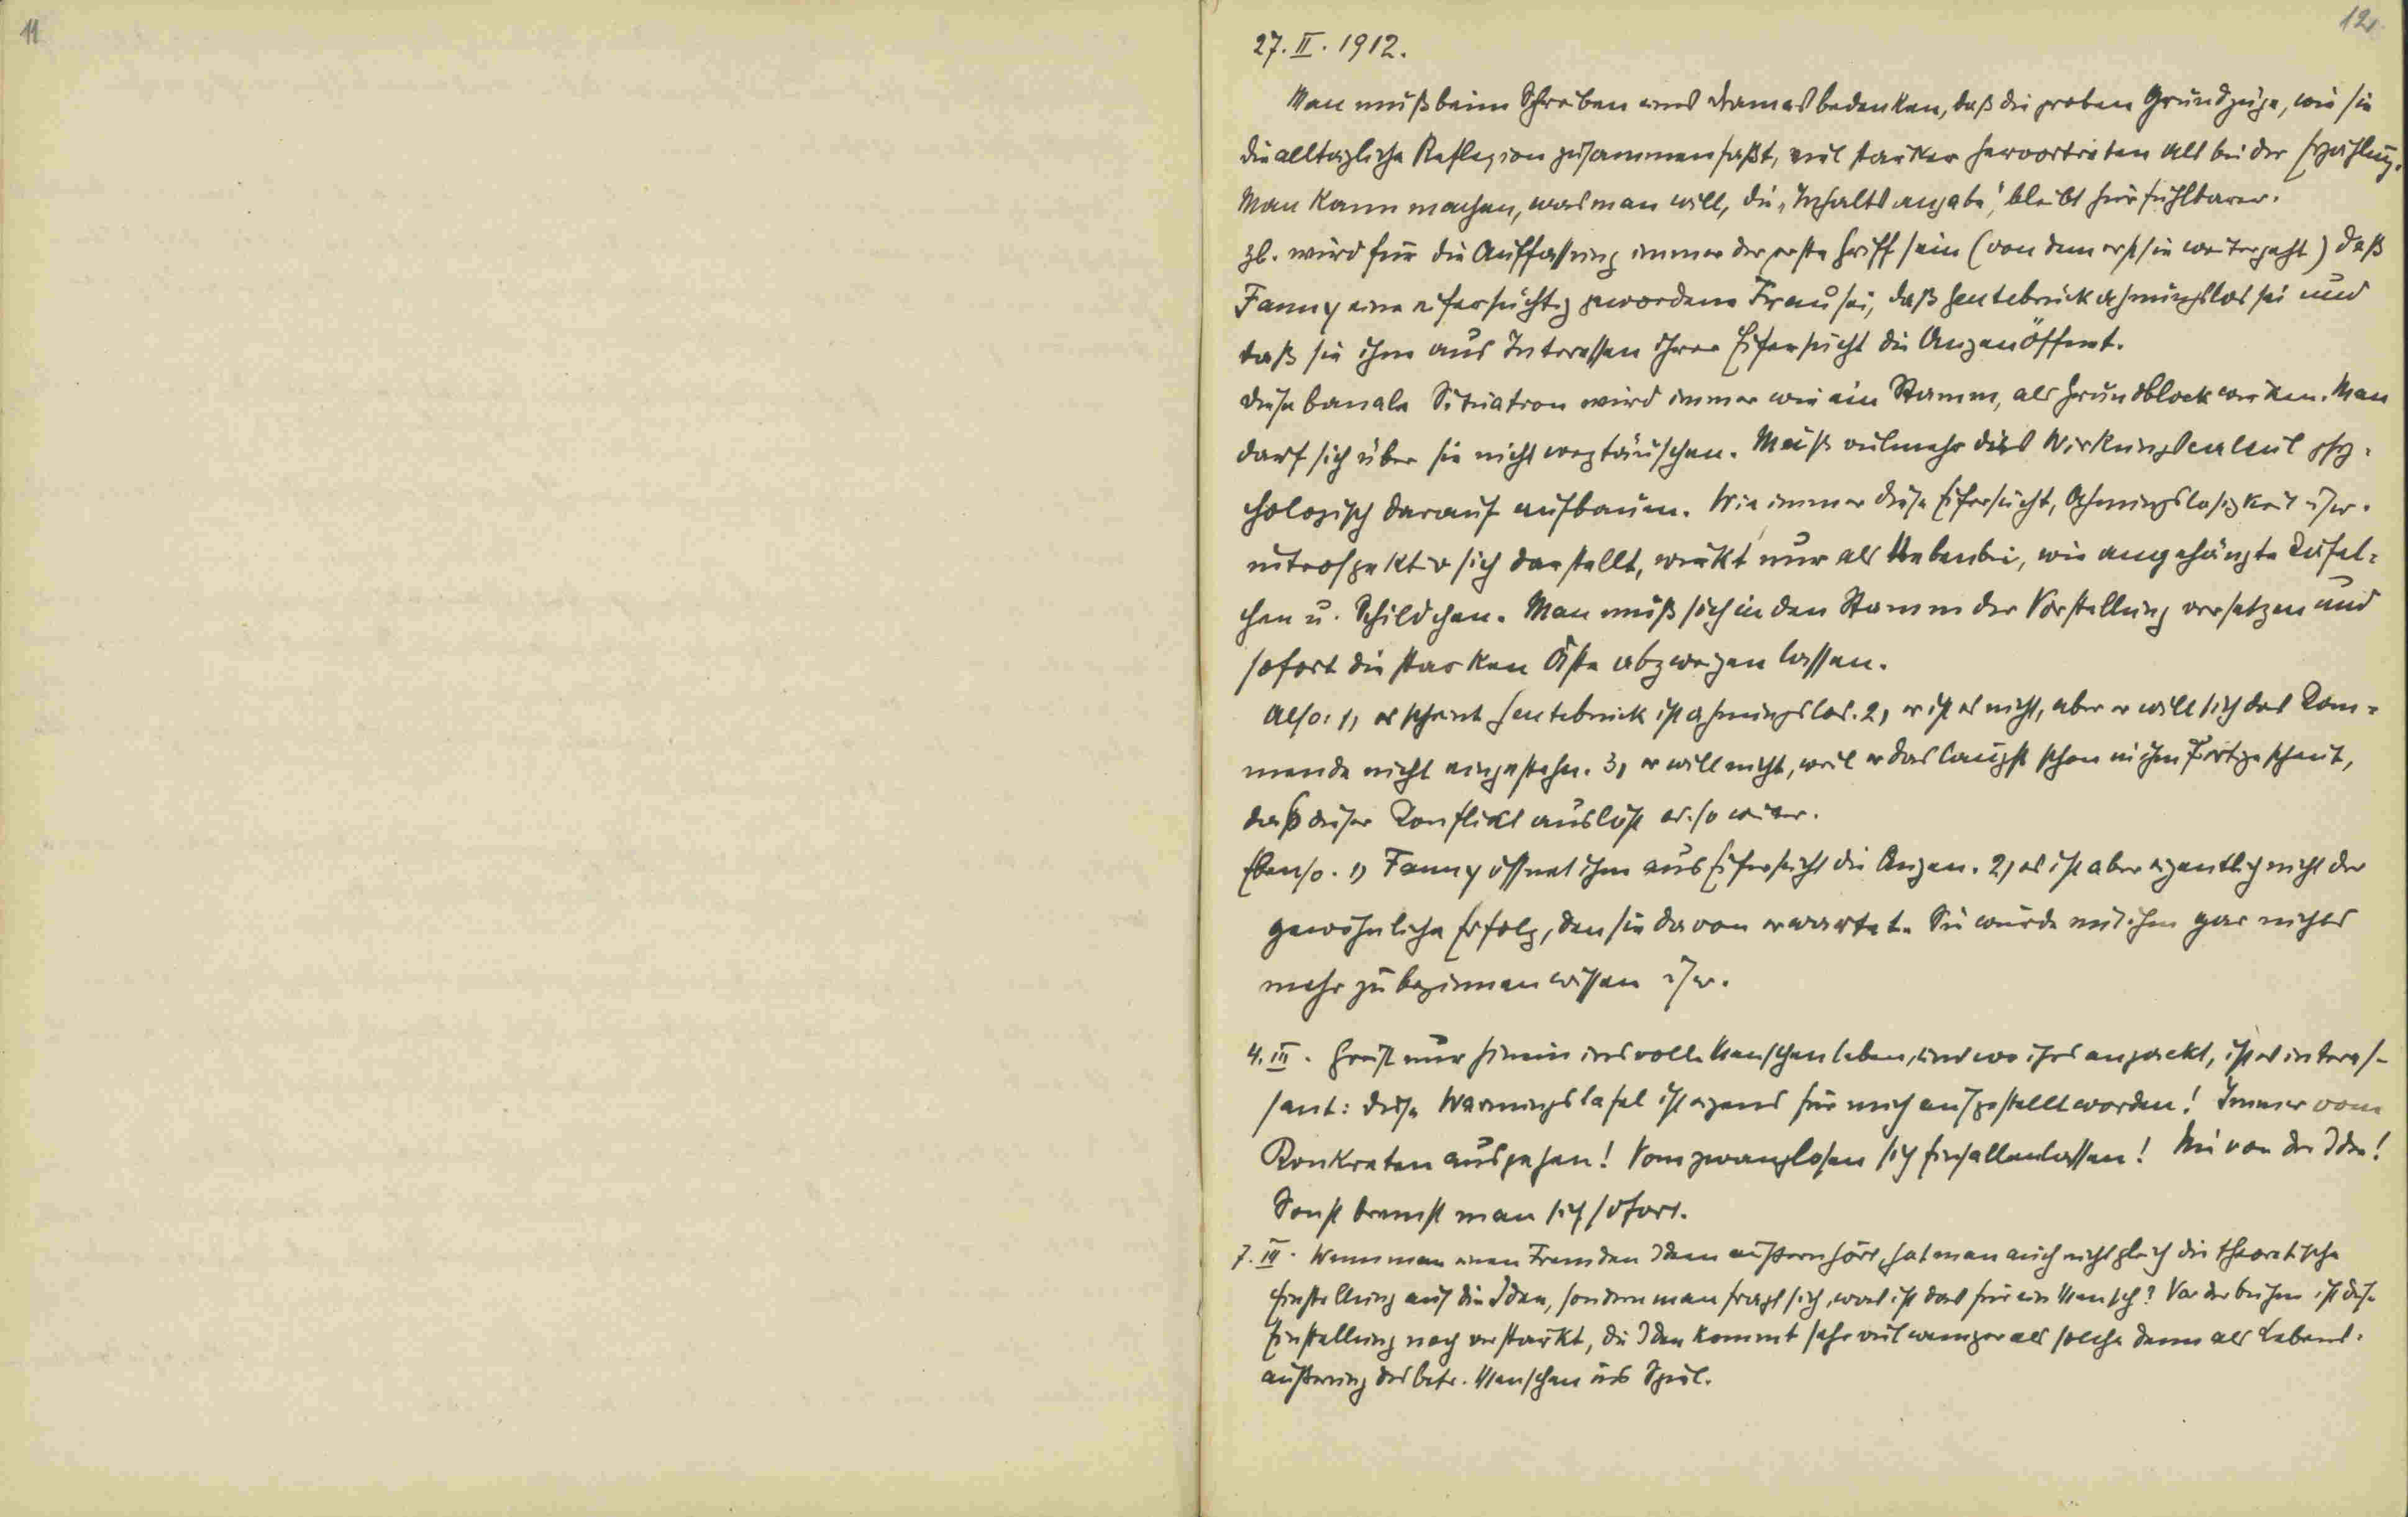 11
12
27. II. 1912.
Man muß beim Schreiben eines Dramas bedenken, daß die groben Grundzüge, wie sie
die alltägliche Reflexion zusammenfaßt, viel stärker hervortreten als bei der Erzählung.
Man kann machen, was man will, die „Inhaltsangabe" bleibt hier fühlbarer.
zb. wird für die Auffassung immer der erste Griff sein (von dem erst sie weitergeht) daß
Fanny eine eifersüchtig gewordene Frau sei, daß Hentebrück ahnungslos sei und
daß sie ihm aus Interessen ihrer Eifersucht die Augen öffnet.
Diese banale Situation wird immer wie ein Stamm, als Grundblock wirken. Man
darf sich über sie nicht wegtäuschen. Muß vielmehr dies Wirkungscalcul psy-
chologisch darauf aufbauen. Wie immer diese Eifersucht, Ahnungslosigkeit usw.
introspektiv sich darstellt, wirkt nur als Nebenbei, wie angehängte Täfel-
chen u. Schildchen. Man muß sich in den Stamm der Vorstellung versetzen und
sofort die starken Äste abzweigen lassen.
Also: 1, es scheint Hentebrück ist ahnungslos. 2, er ist es nicht, aber er will sich das Kom-
mende nicht eingestehn. 3, er will nicht, weil er das längst schon in ihm
daß dieser Konflikt auslöst so weiter.
Ebenso. 1, Fanny öffnet ihm aus Eifersucht die Augen. 2, es ist aber eigentlich nicht der
gewöhnliche Erfolg, den sie davon erwartet. Sie würde mit ihm gar nichts
mehr zu beginnen wissen usw.
4. III. Greift nur hinein ins volle Menschenleben, und wo ihrs anpackt, ist es interes-
sant: diese Warnungstafel ist eigens für mich aufgestellt worden! Immer vom
Konkreten ausgehen! Vom zwanglosen sich Einfallenlassen! Nie von der Idee!
Sonst bremst man sich sofort.
7. III. Wenn man einen Fremden Ideen äußern hört, hat man auch nicht gleich die theoretische
Einstellung auf die Ideen, sondern man fragt sich, was ist das für ein Mensch? Vor der Bühne ist diese
Einstellung noch verstärkt, die Idee kommt sehr viel weniger als solche denn als Lebens-
äußerung des betr. Menschen ins Spiel.